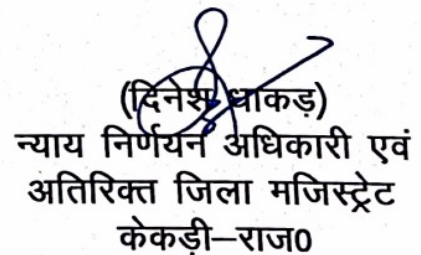 (दिनेश धाकड़)
न्याय निर्णयन अधिकारी एवं
अतिरिक्त जिला मजिस्ट्रेट
केकड़ी–राज0